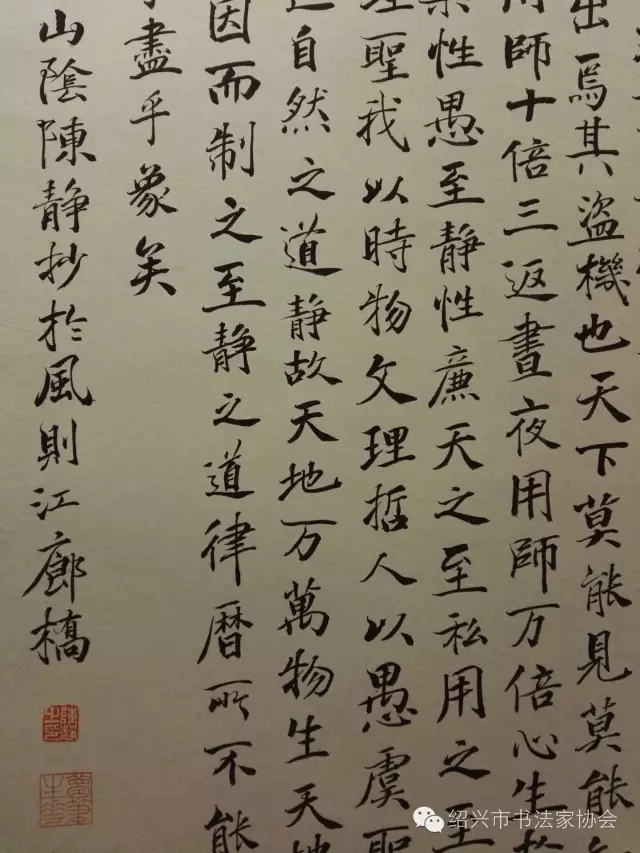 出焉其盜機也天下莫能見莫能
用師十倍三返晝夜用師万倍心生於
性愚至静性廉天之至私用之至
理聖我以時物文理哲人以愚虞聖
自然之道静故天地万萬物生天地
因而制之至静之道律曆所不能
盡乎象矣
山陰陳静抄於風則江廊橋
绍兴市书法家协会